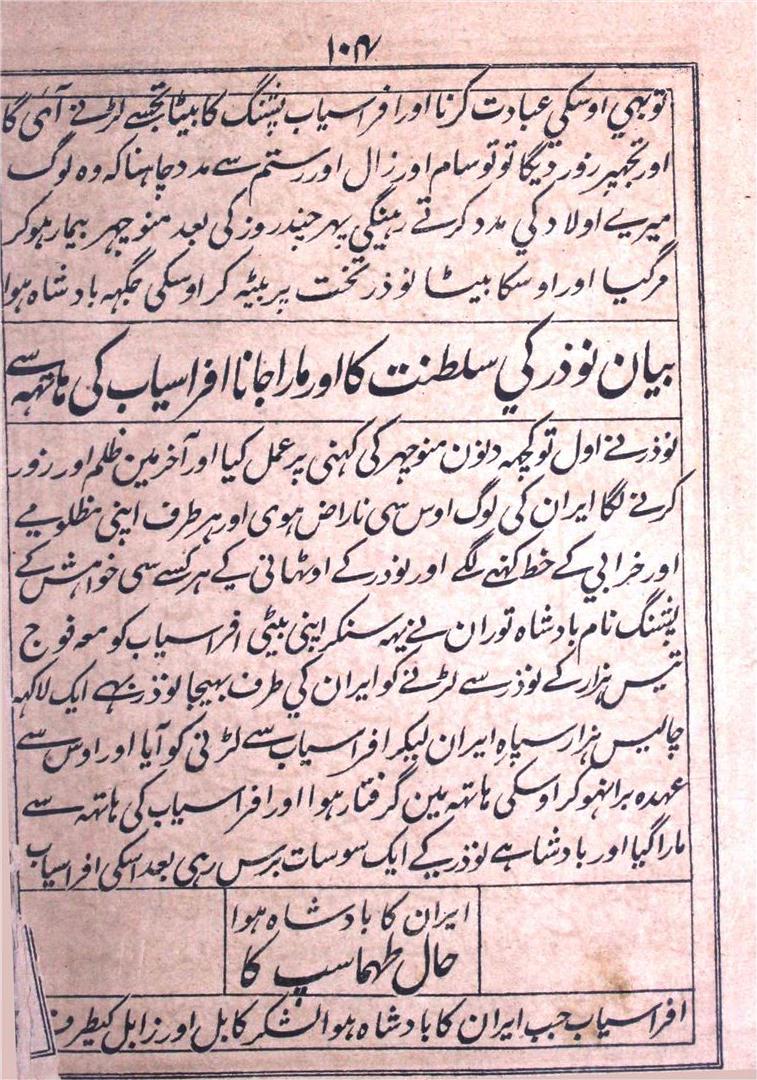 ۱۰۴
توبھي اوسکي عبادت کرنا اور افراسیاب پشنگ کا بیٹا تجھسے لڑنے آئی گا
اور تجھپر زور دیگا تو تو سام اور زال اور رستم سے مدد چاہنا کہ وہ لوگ
میرے اولاد کي مدد کرتے رہینگي پہر چند روز کی بعد منوچہر بیمار ہوکر
مرگیا اور اوسکا بیٹا نوذر تخت پر بیٹہ کر اوسکی جگہہ بادشاہ ہوا
بیان نوذر کي سلطنت کا اور مارا جانا افراسیاب کی ہاتہہ سے
نوذر نے اول تو کچہہ دنون منوچہر کی کہنی پر عمل کیا اور آخر مین ظلم اور زور
کرنے لگا ایران کی لوگ اوس سی ناراض ہوی اور ہر طرف اپنی مظلومے
اور خرابي کے خط لکہنے لگے اور نوذر کے اوٹھانی کے ہر کسے سی خواہش کے
پشنگ نام بادشاہ توران نے یہہ سنکر اپنی بیٹی افراسیاب کو معہ فوج
تیس ہزار کے نوذر سے لڑنے کو ایران کي طرف بہیجا نوذر بہے ایک لاکہہ
چالیس ہزار سپاہِ ایران لیکر افراسیاب سے لڑنی کو آیا اور اوس سے
عہدہ برانہو کر اوسکی ہاتہہ مین گرفتار ہوا اور افراسیاب کی ہاتہہ سے
مارا گیا اور بادشاہے نوذر کے ایک سو سات برس رہی بعد اسکی افراسیاب
ایران کا بادشاہ ہوا
حال طہماسپ کا
افراسیاب جب ایران کا بادشاہ ہوا لشکر کابل اور زابل کیطرف